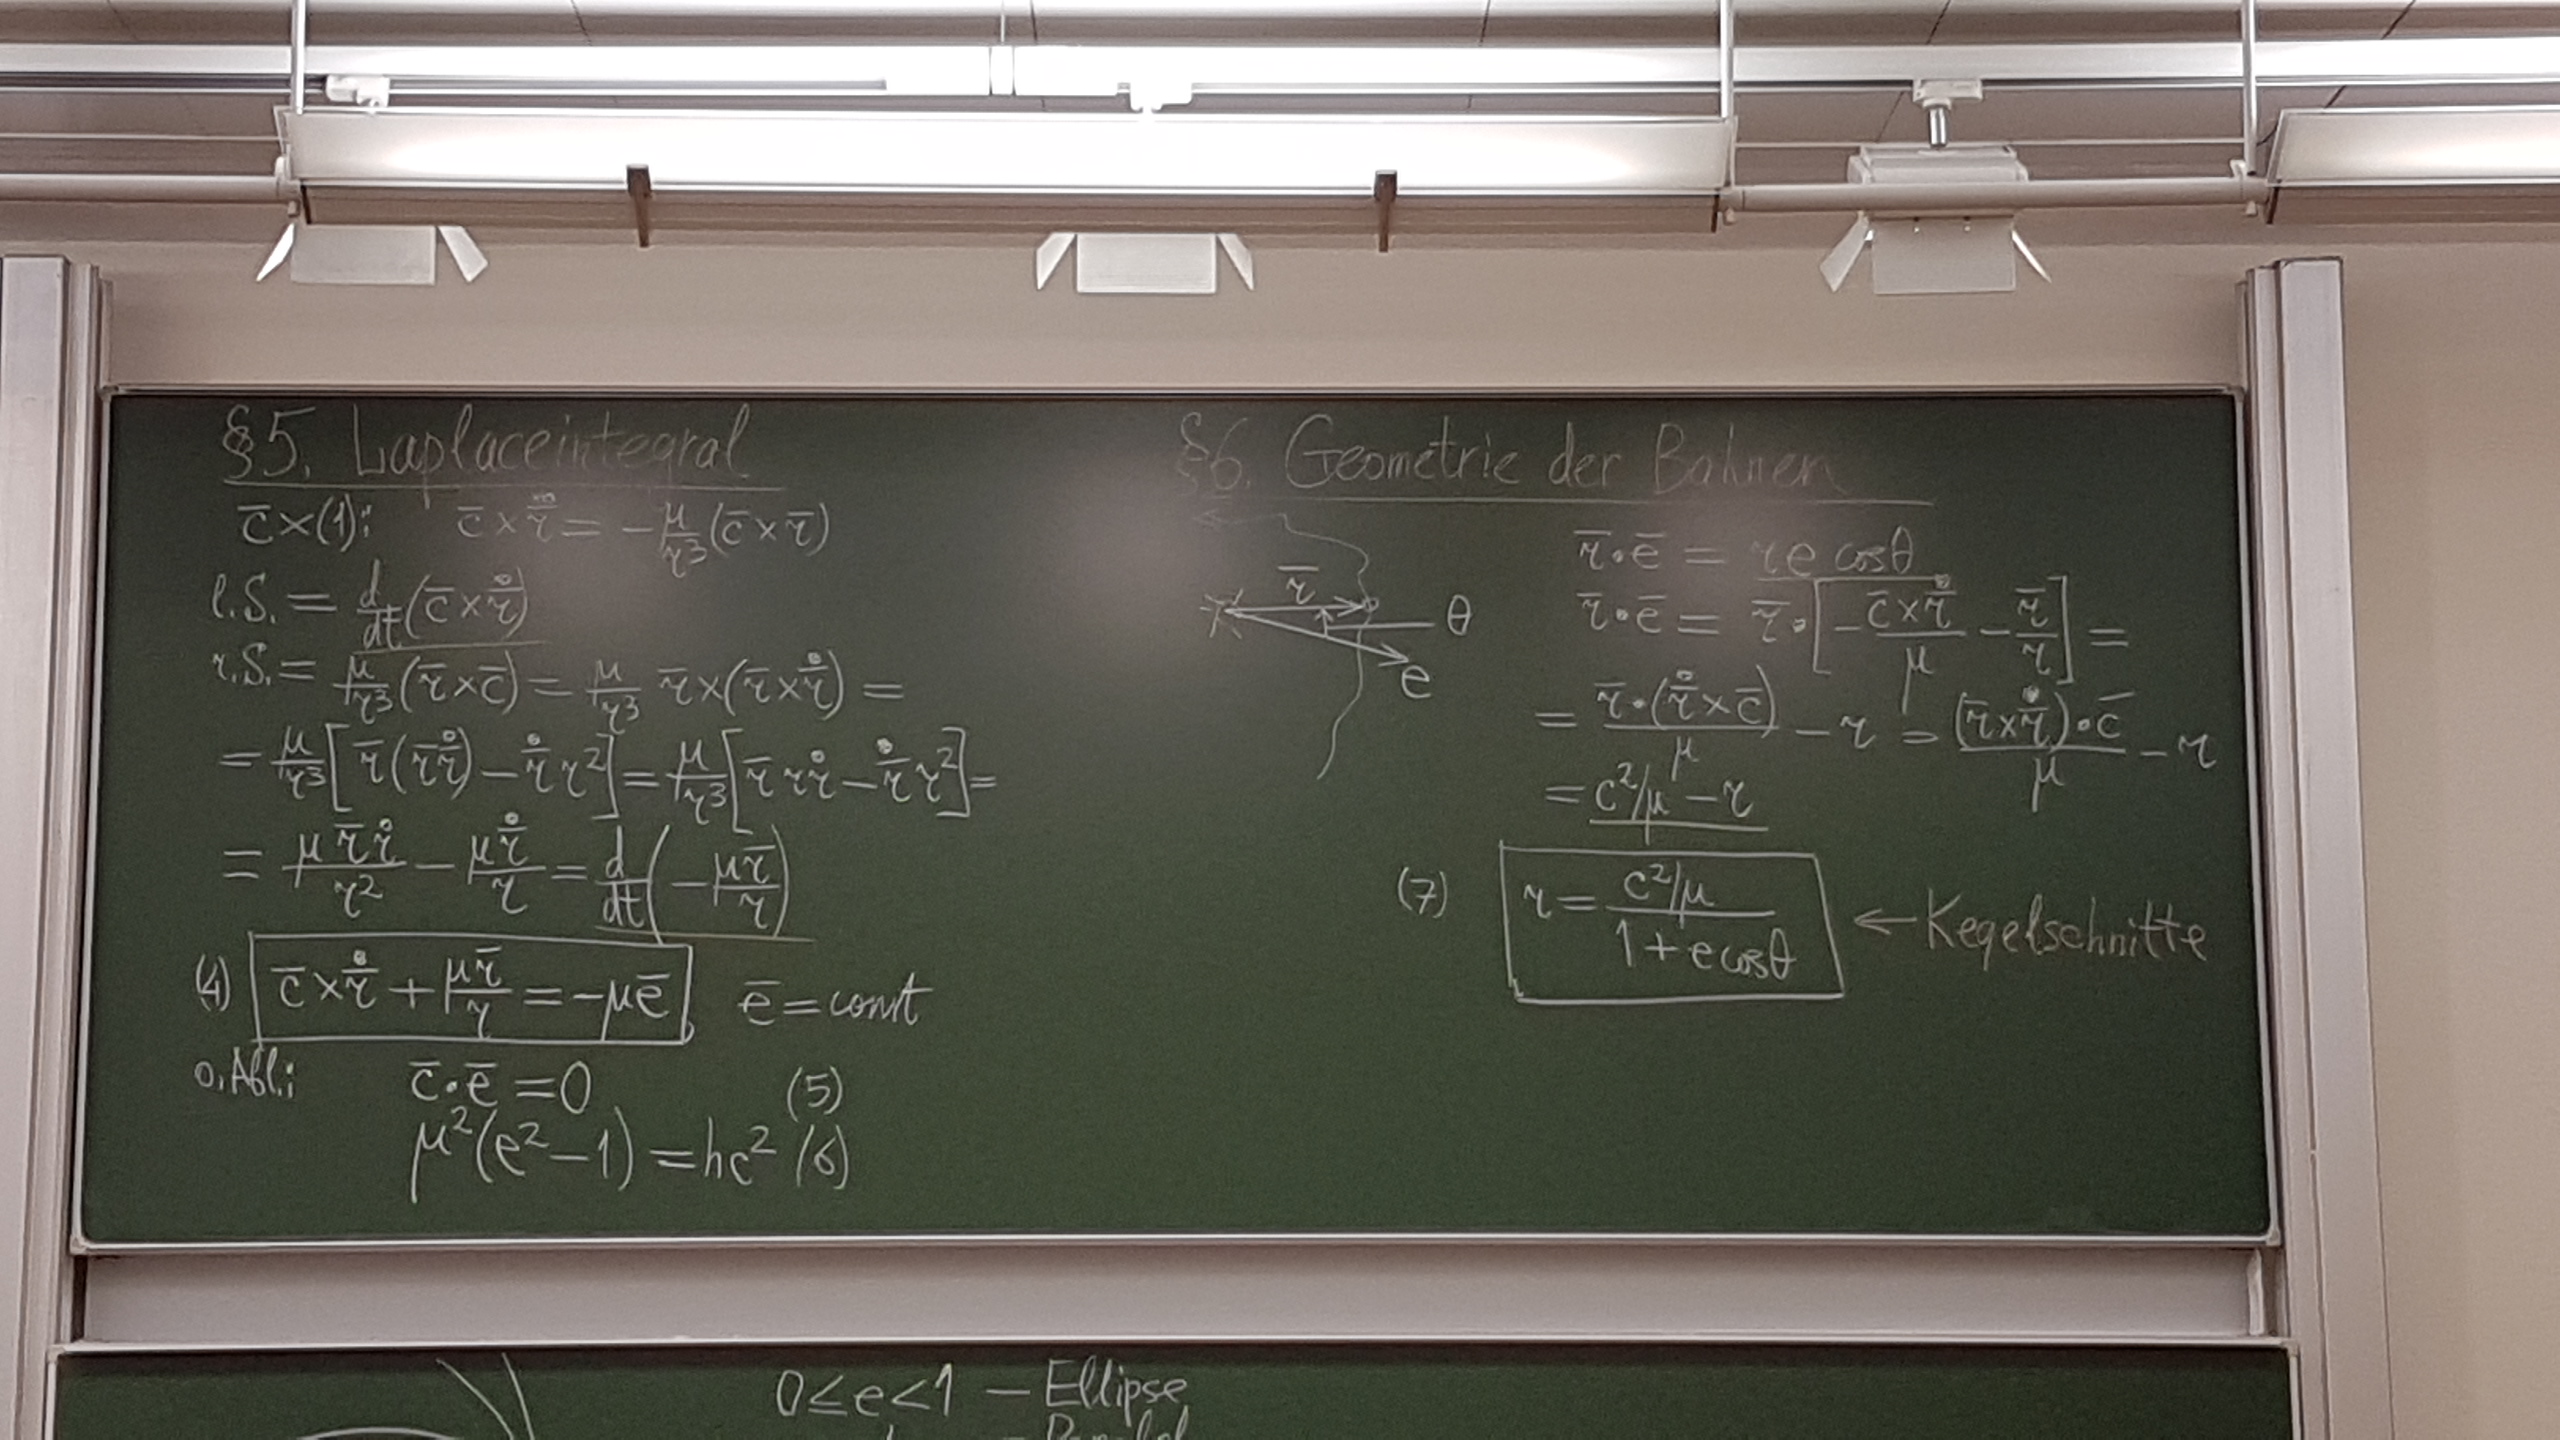 §5. Laplaceintegral
c̅×(1): c̅×r̅̈ = -μ/r³(c̅×r̅)
l.S. = d/dt(c̅×r̅̇)
r.S. = μ/r³(r̅×c̅) = μ/r³ r̅×(r̅×r̅̇) =
= μ/r³[r̅(r̅r̅̇) - r̅̇r²] = μ/r³[r̅rṙ - r̅̇r²] =
= μr̅ṙ/r² - μr̅̇/r = d/dt(-μr̅/r)
(4) c̅×r̅̇ + μr̅/r = -μe̅ e̅ = const
o.Abl.: c̅·e̅ = 0 (5)
μ²(e²-1) = hc² (6)
§6. Geometrie der Bahnen
r̅
θ
e
r̅·e̅ = re cosθ
r̅·e̅ = r̅·[-c̅×r̅̇/μ - r̅/r] =
= r̅·(r̅̇×c̅)/μ - r = (r̅×r̅̇)·c̅/μ - r
= c²/μ - r
(7) r = c²/μ / 1+e cosθ ← Kegelschnitte
0≤e<1 – Ellipse